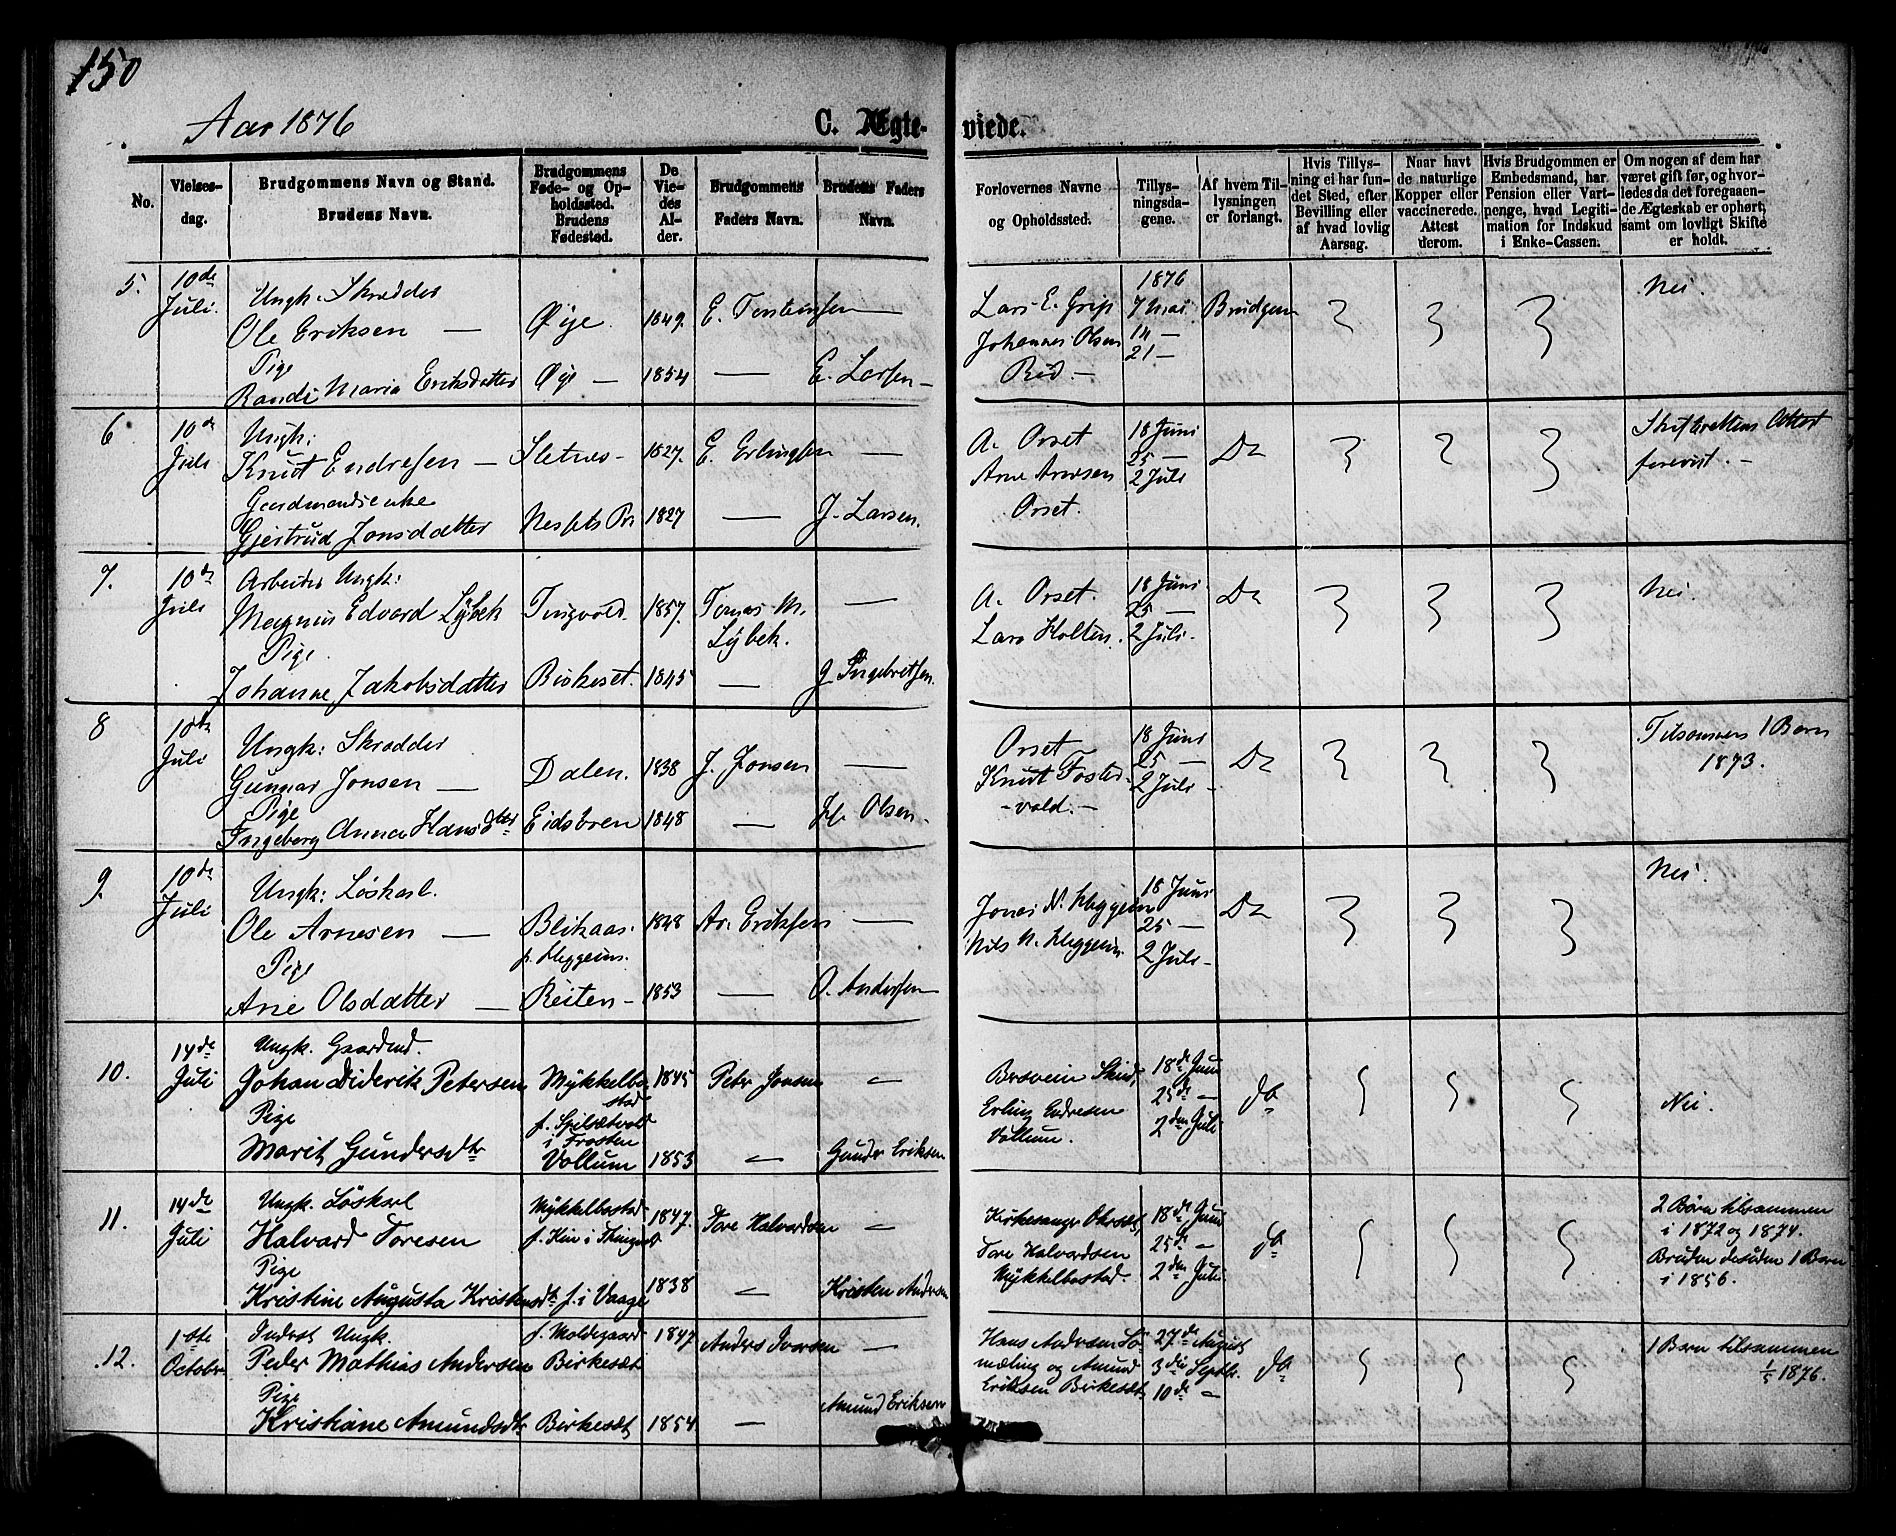 150
Aar 1876
C. Ægteviede.
No.
Vielses-
dag.
Brudgommens Navn og Stand.
Brudens Navn.
Brudgommens
Føde- og Op-
holdssted.
Brudens
Fødested.
De
Vie-
des
Al-
der.
Brudgommens
Faders Navn.
Brudens Faders
Navn.
Forlovernes Navne
og Opholdssted.
Tillys-
ningsda-
gene.
Af hvem Til-
lysningen
er forlangt.
Hvis Tillys-
ning ei har fun-
det Sted, efter
Bevilling eller
af hvad lovlig
Aarsag.
Naar havt
de naturlige
Kopper eller
vaccinerede.
Attest
derom.
Hvis Brudgommen er
Embedsmand, har
Pension eller Vart-
penge, hvad Legiti-
mation for Indskud
i Enke-Cassen.
Om nogen af dem har
været gift før, og hvor-
ledes da det foregaaen-
de Ægteskab er ophørt,
samt om lovligt Skifte
er holdt.
5. 10de Juli.
Ungk: Skrædder
Ole Eriksen — Øye. 1849. E. Torstensen —
Pige
Randi Maria Eriksdatter Øye — 1854 — E. Larsen —
Lars E. Grip
Johannes Olsen
Bød. —
1876
7 Mai.
14 —
21 —
Brudgom
Nei.
6 10de Juli
Ungk:
Knut Endresen — Sletnes — 1827. E. Erlingsen —
Gaardmandsenke
Gjertrud Jonsdatter Nessets Pr 1827 — J. Larsen.
A. Orset
Arne Arnesen
Orset.
18 Juni
25 —
2 Juli
Do
Skifterettens Attest
forevist. —
7. 10de Juli
Arbeider Ungk:
Magnus Edvard Lybek Tingvold. 1857. Tomas M. Lybek. —
Pige
Johanne Jakobsdatter Birkeset. 1845 — J. Ingebretsen.
A. Orset.
Lars Holten.
18 Juni.
25 —
2 Juli.
Do
Nei.
8 10de Juli
Ungk: Skrædder
Gunnar Jonsen — Dalen. 1838 J. Jonsen —
Pige
Ingeborg Anna Hansdtter Eidsøren 1848 — H. Olsen.
Orset
Knut Foster-
vold. —
18 Juni
25 —
2 Juli —
Do
Tilsammen 1 Barn
1873.
9. 10de Juli
Ungk: Løskarl.
Ole Arnesen — Blikaas. 1848 Ar. Eriksen —
f. Heggeim.
Pige
Ane Olsdatter — Reiten — 1853 — O. Andersen
Jonas N. Heggeim
Nils N. Heggeim
18 Juni
25 —
2 Juli —
Do
Nei.
10. 14de Juli
Ungk. Gaardmd.
Johan Diderik Petersen Mykkelbostad 1845 Peter Jonsen —
f. Spilsætvold
i Frosten
Pige
Marit Gundersdtr Vollum 1853 — Gunder Eriksen
Erling Endresen
Vollum.
18de Juni
25de —
2den Juli
do
Nei.
11. 14de Juli
Ungk. Løskarl
Halvard Toresen Mykkelbostad 1847. Tore Halvardsen —
Pige
Kristine Augusta Kristensdtr f. i Vaage 1838 — Kristen Andersen
Kirkesanger Ohrset,
Tore Halvardsen
Mykkelbostad.
18de Juni
25de —
2den Juli
do
2 Børn tilsammen
i 1872 og 1874.
Bruden desuden 1 Barn
i 1856.
12. 1ste October
Inderst Ungk.
Peder Mathias Andersen f. Moldegaard Birkesæt 1847 Anders Ivarsen —
Pige
Kristiane Amundsdtr Birkesæt 1854 — Amund Eriksen
Hans Andersen Sø-
mæling og Amund
Eriksen Birkesæt
27de August
3die Septbr.
10de —
do
1 Barn tilsammen
1/5 1876.